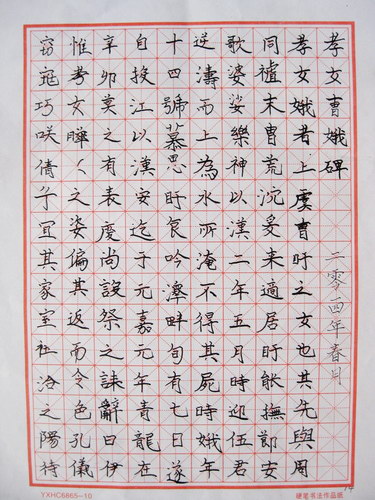 孝女曹娥碑 二零一四年春月
孝女娥者上虞曹盱之女也其先與周
同末冑荒沉爰來適居盱能撫節安
歌婆娑樂神以漢二年五月時迎伍君
逆濤而上為水所淹不得其屍時娥年
十四號慕思盱哀吟澤畔旬有七日遂
自投江以漢安迄于元嘉元年青龍在
辛卯莫之有表度尚設祭之誄辭曰伊
惟孝女曄々之姿偏其返而令色孔儀
窈窕巧咲倩兮宜其家室在洽之陽待
YXHC6865-10
硬笔书法作品纸
14